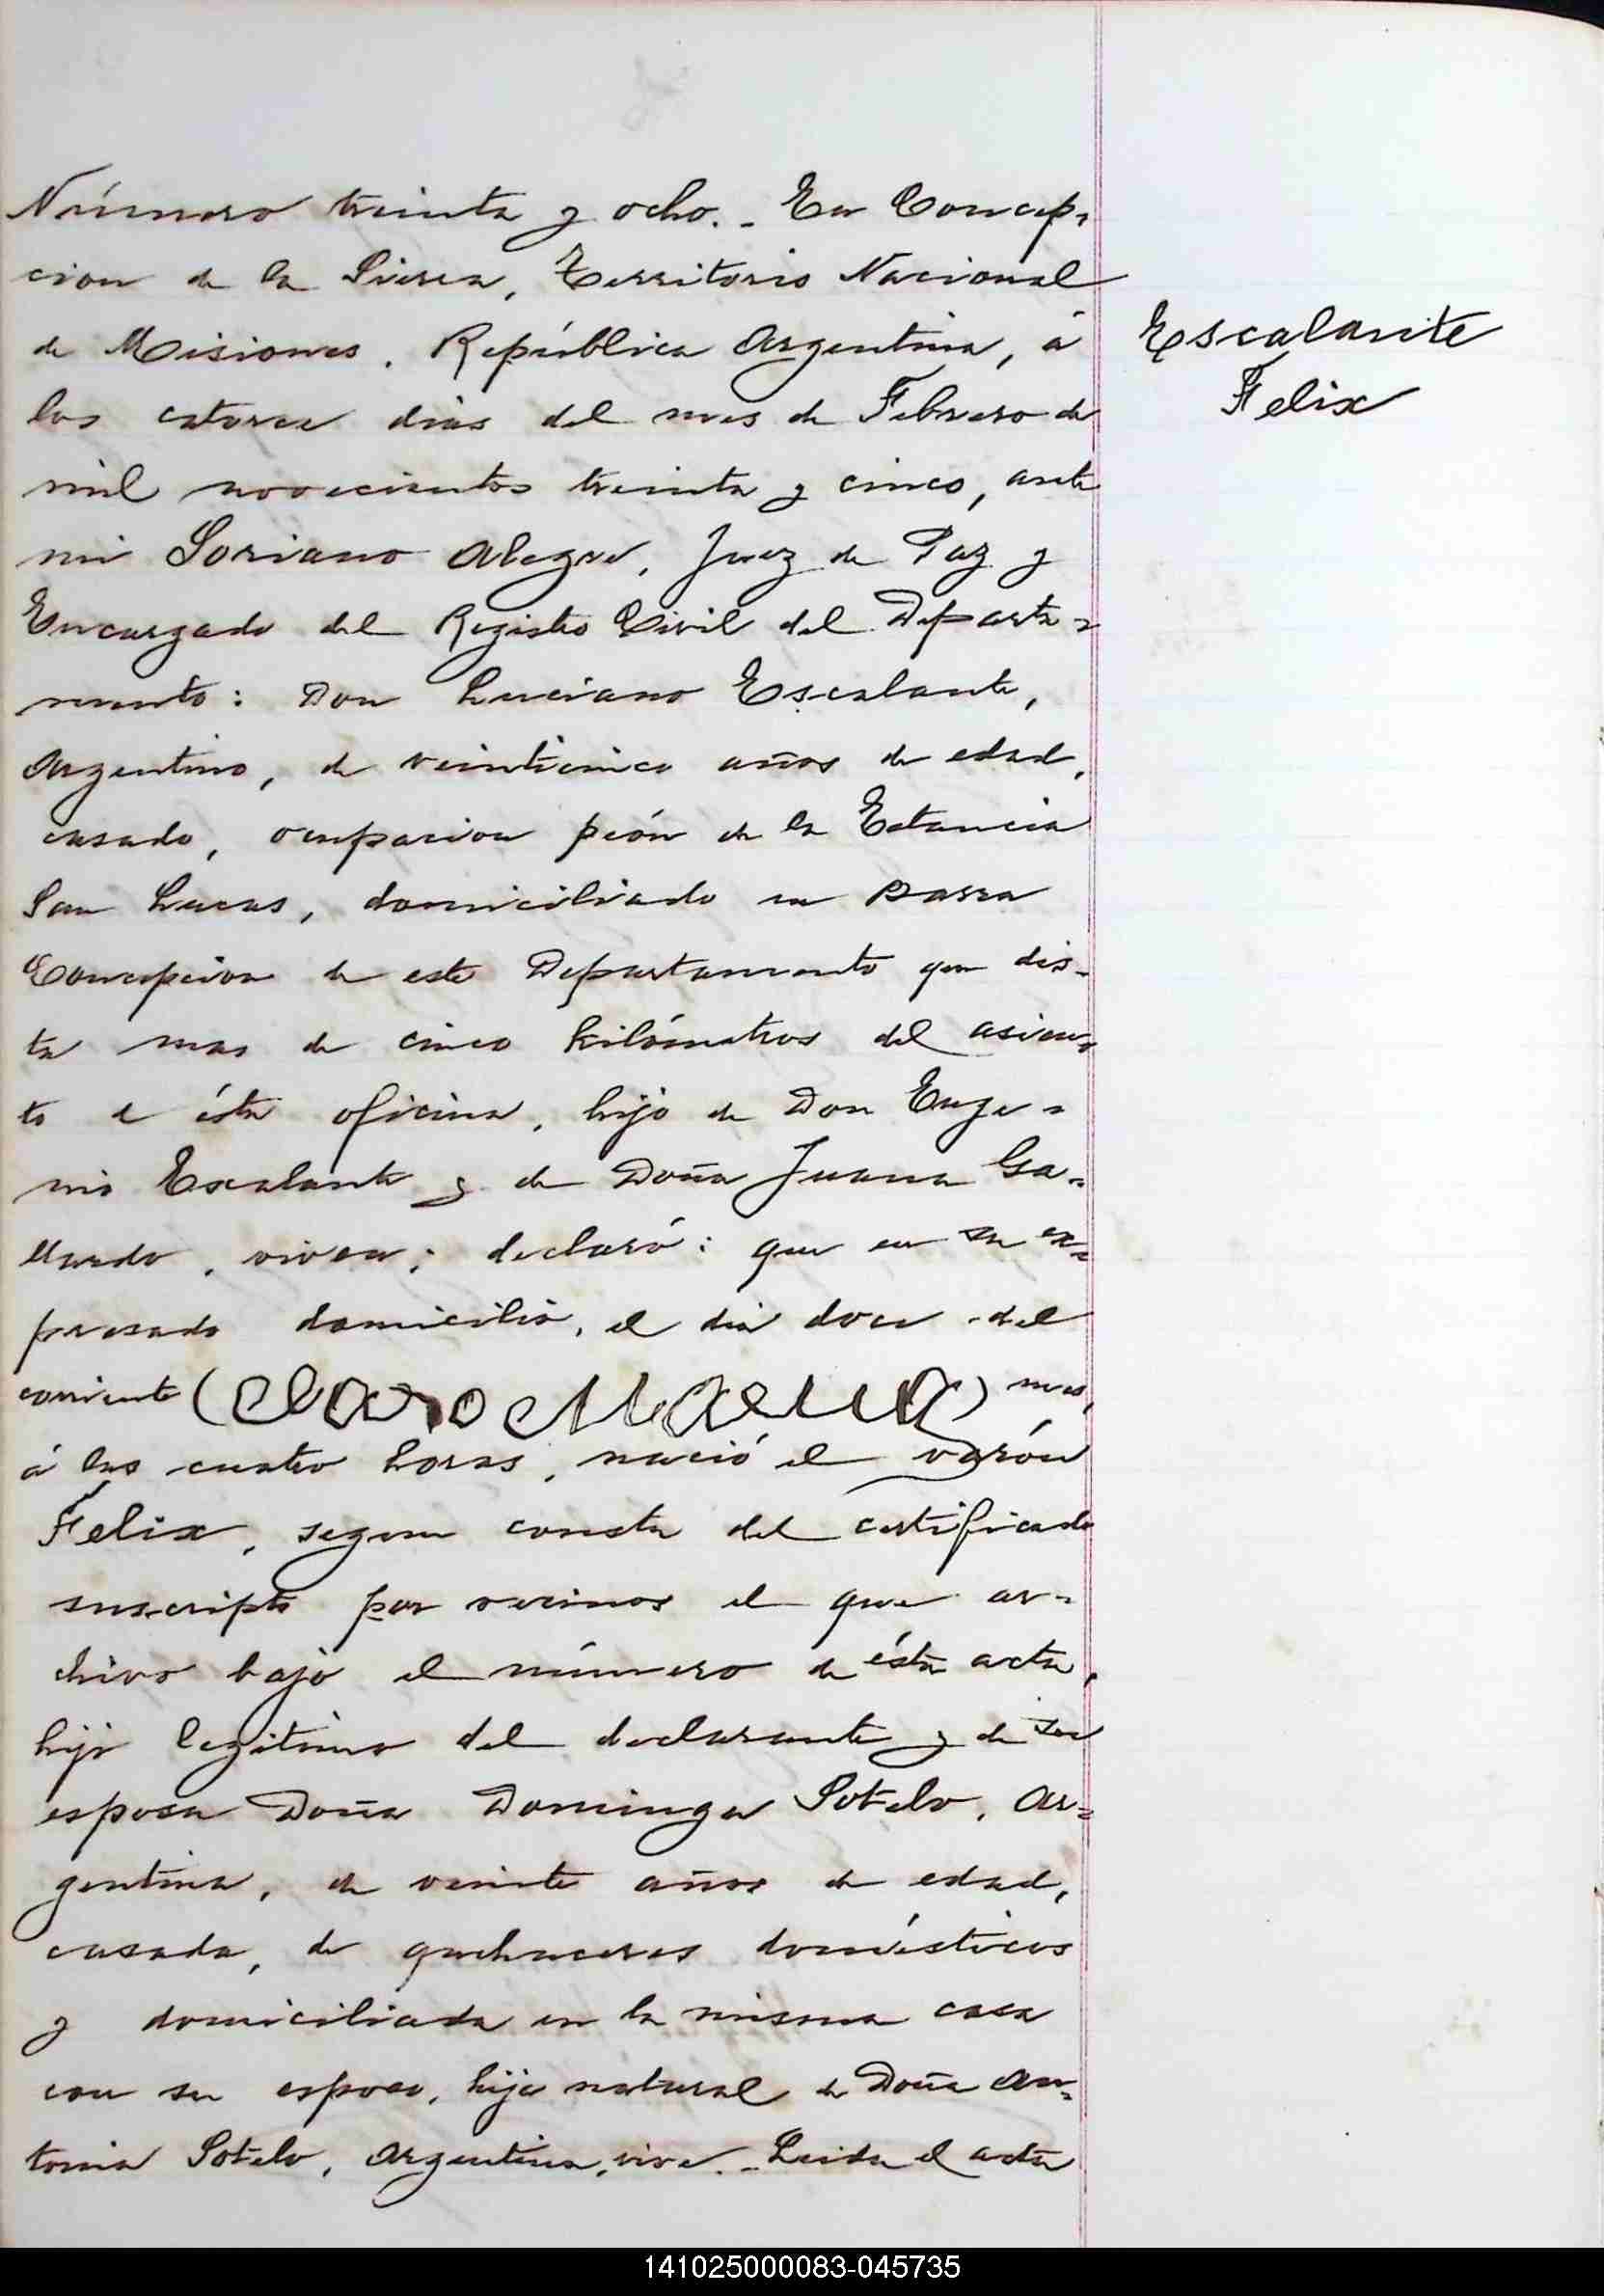 Número treinta y ocho._ En Concep=
cion de la Sierra, Territorio Nacional
de Misiones. República Argentina, á
los catorce dias del mes de Febrero de
mil novecientos treinta y cinco, ante
mi Soriano Alegre, Juez de Paz y
Encargado del Registro Civil del Departa=
mento: Don Luciano Escalante,
Argentino, de veinticinco años de edad,
casado, ocupacion peón de la Estancia
San Lucas, domiciliado en Barra
Concepcion de este Departamento que dis=
ta mas de cinco kilómetros del asien=
to de ésta oficina, hijo de Don Euge=
nio Escalante y de Doña Juana Ga=
llardo, viven; declaró: que en su ex=
presado domicilio, el dia doce del
corriente ( ) mes,
á las cuatro horas, nació el varón
Felix, segun consta del certificado
suscripto por vecinos el que ar=
chivo bajo el número de ésta acta,
hijo legitimo del declarante y de su
esposa Doña Dominga Sotelo, Ar=
gentina, de veinte años de edad,
casada, de quehaceres domésticos
y domiciliada en la misma casa
con su esposo, hija natural de Doña An=
tonia Sotelo, Argentina, vive._ Leida el acta
Escalante
Felix
141025000083-045735